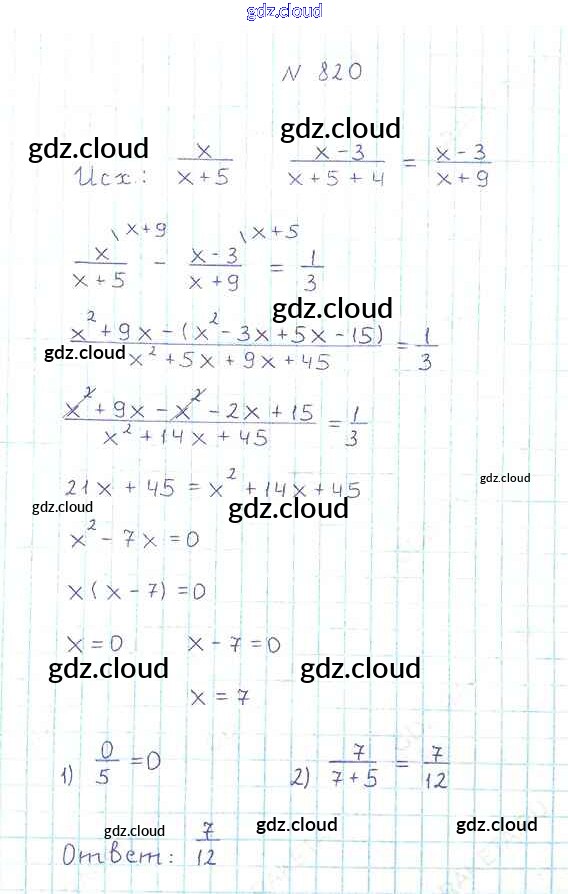 gdz.cloud
N 820
gdz.cloud gdz.cloud
Исх: x/(x+5) (x-3)/(x+5+4) = (x-3)/(x+9)
x/(x+5) \x+9 - (x-3)/(x+9) \x+5 = 1/3
gdz.cloud
(x²+9x-(x²-3x+5x-15))/(x²+5x+9x+45) = 1/3
gdz.cloud
(x²+9x-x²-2x+15)/(x²+14x+45) = 1/3
gdz.cloud
21x+45 = x²+14x+45
gdz.cloud gdz.cloud
x²-7x=0
x(x-7)=0
x=0 x-7=0
gdz.cloud gdz.cloud
x=7
1) 0/5 =0 2) 7/(7+5) = 7/12
gdz.cloud gdz.cloud gdz.cloud
Ответ: 7/12